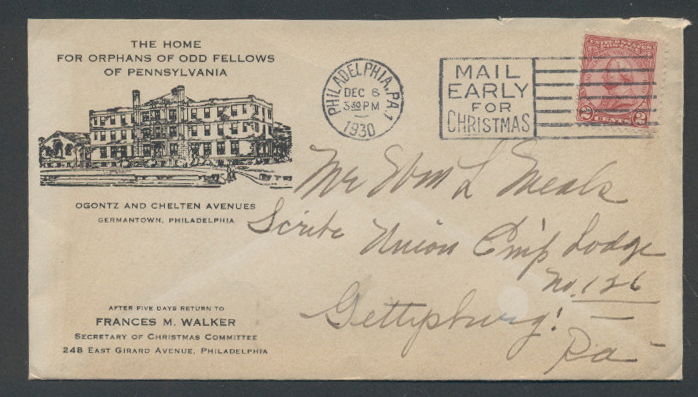 THE HOME
FOR ORPHANS OF ODD FELLOWS
OF PENNSYLVANIA
OGONTZ AND CHELTEN AVENUES
GERMANTOWN, PHILADELPHIA
AFTER FIVE DAYS RETURN TO
FRANCES M. WALKER
SECRETARY OF CHRISTMAS COMMITTEE
248 EAST GIRARD AVENUE, PHILADELPHIA
PHILADELPHIA, PA. 1
DEC 6
3 30 PM
1930
MAIL
EARLY
FOR
CHRISTMAS
UNITED STATES
2 CENTS 2
Mr Wm L Meals
Scribe Union Cmp Lodge
No. 126
Gettysburg!
Pa